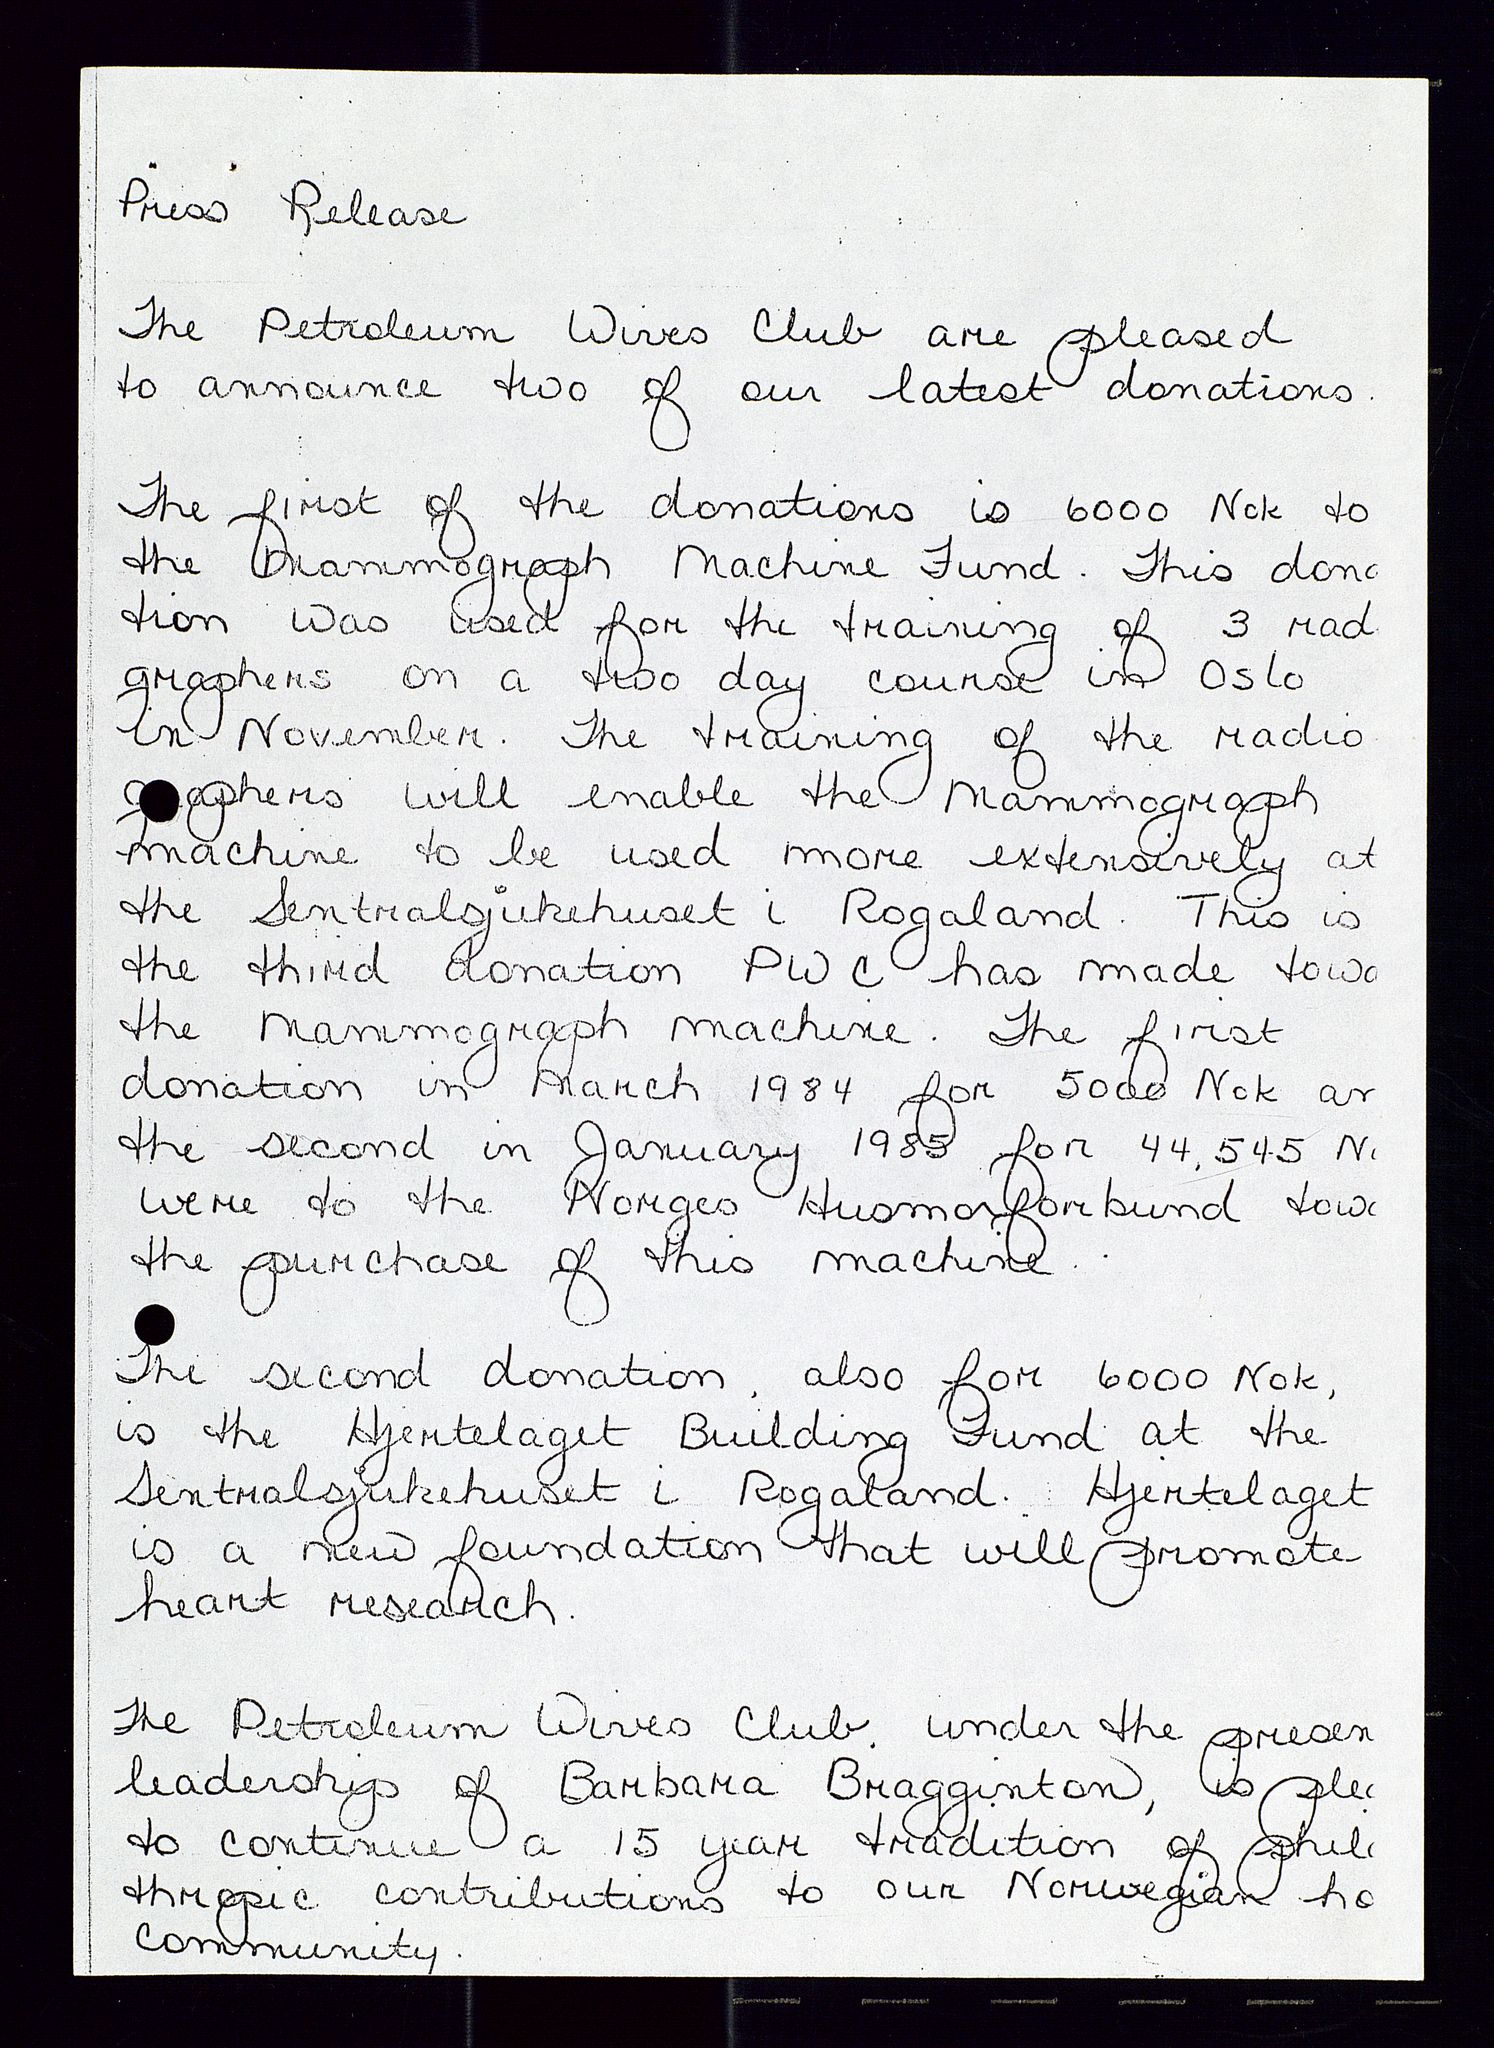 Press Release
The Petroleum Wives Club are pleased
to announce two of our latest donations.
The first of the donations is 6000 Nok to
the Mammograph Machine Fund. This dona
tion was used for the training of 3 rad
graphers on a two day course in Oslo
in November. The training of the radio
graphers will enable the Mammograph
machine to be used more extensively at
the Sentralsjukehuset i Rogaland. This is
the third donation PWC has made towa
the Mammograph machine. The first
donation in March 1984 for 5000 Nok an
the second in January 1985 for 44,545 N
were to the Norges Husmorforbund towa
the purchase of this machine.
The second donation, also for 6000 Nok,
is the Hjertelaget Building Fund at the
Sentralsjukehuset i Rogaland. Hjertelaget
is a new foundation that will promote
heart research.
The Petroleum Wives Club, under the presen
leadership of Barbara Bragginton, is plea
to continue a 15 year tradition of phila
thropic contributions to our Norwegian ho
community.